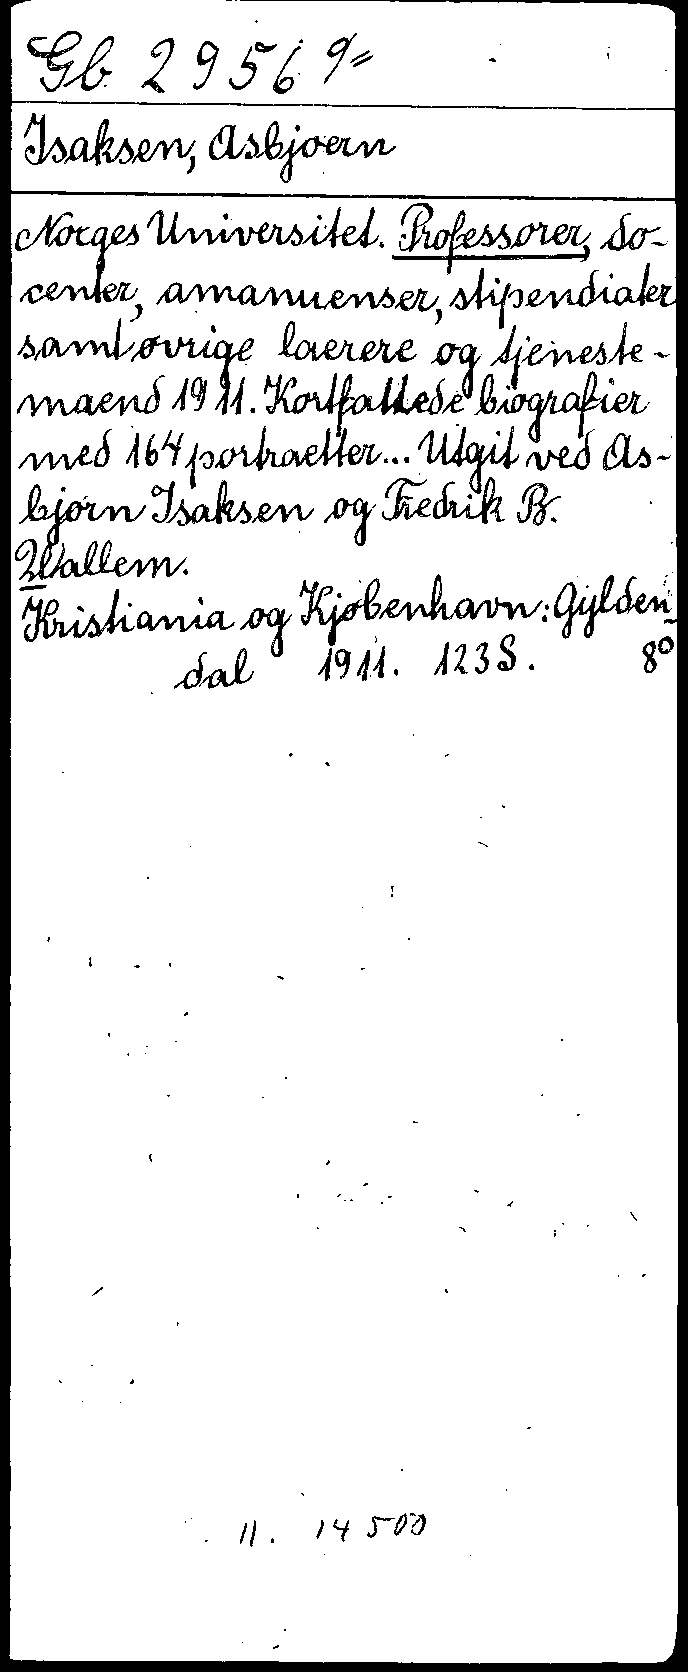 Gb 2956 q=
Isaksen, Asbjoern
Norges Universitet. Professorer, do-
center, amanuenser, stipendiater
samt øvrige laerere og tjeneste-
maend 1911. Kortfattede biografier
med 164 portraetter... Utgit ved As-
bjørn Isaksen og Fredrik B.
Wallem.
Kristiania og Kjøbenhavn: Gylden-
dal 1911. 123 S. 8°
11. 14500